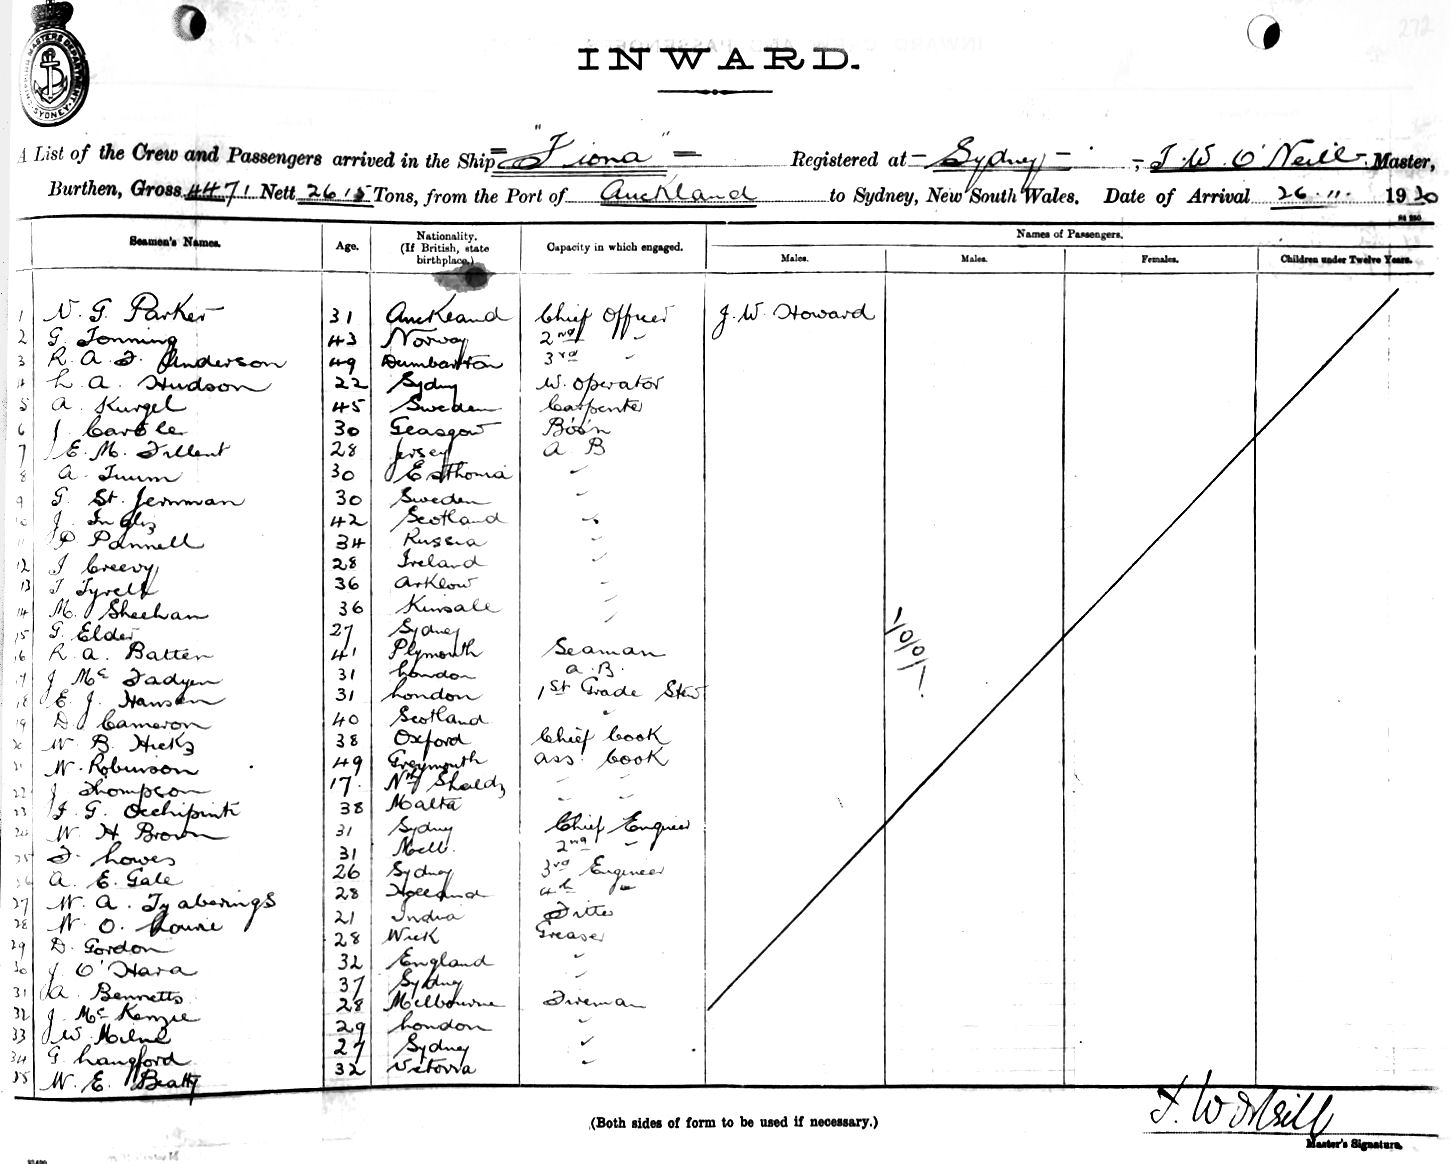 SHIPPING MASTERS DEPARTMENT SYDNEY
272
INWARD.
A List of the Crew and Passengers arrived in the Ship "Fiona" Registered at Sydney, J. W. O'Neill Master,
Burthen, Gross 4471 Nett 2615 Tons, from the Port of Auckland to Sydney, New South Wales. Date of Arrival 26.11. 1930
Seamen's Names. Age. Nationality. (If British, state birthplace.) Capacity in which engaged. Names of Passengers.
Males. Males. Females. Children under Twelve Years.
1 N. G. Parker 31 Auckland Chief Officer J. W. Howard
2 G. Tonning 43 Norway 2nd "
3 R. A. F. Anderson 49 Dumbarton 3rd "
4 L. A. Hudson 22 Sydney W. Operator
5 A. Kurgel 45 Sweden Carpenter
6 J. Carbler 30 Glasgow Bo's'n
7 E. M. Fillent 28 Jersey A B
8 A. Tuum 30 Esthonia "
9 G. St. Jernman 30 Sweden "
10 J. Inglis 42 Scotland "
11 P Pannell 34 Russia "
12 J Creevy 28 Ireland "
13 T Tyrell 36 Arklow "
14 M. Sheehan 36 Kinsale "
15 G. Elder 27 Sydney "
16 R. A. Batten 41 Plymouth Seaman
17 J McFadyen 31 London A.B.
18 E. J. Hansen 31 London 1st Grade Stew
19 D. Cameron 40 Scotland "
20 W. B. Hicks 38 Oxford Chief Cook
21 W. Robinson 49 Greymouth Ass. Cook
22 J Thompson 17 Nth Shields " "
23 J. G. Occhipinti 38 Malta " "
24 W. H Brown 31 Sydney Chief Engineer
25 F. Lowes 31 Melb. 2nd "
26 A. E. Gale 26 Sydney 3rd Engineer
27 W. A. Tyaberings 28 Holland 4th "
28 W. O. Lowrie 21 India Fitter
29 D. Gordon 28 Wick Greaser
30 J. O'Hara 32 England "
31 A. Bennetts 37 Sydney "
32 J. McKenzie 28 Melbourne Fireman
33 J W. Milne 29 London "
34 G Langford 27 Sydney "
35 W. E. Beatty 32 Victoria "
(Both sides of form to be used if necessary.)
J. W. O'Neill
Master's Signature.